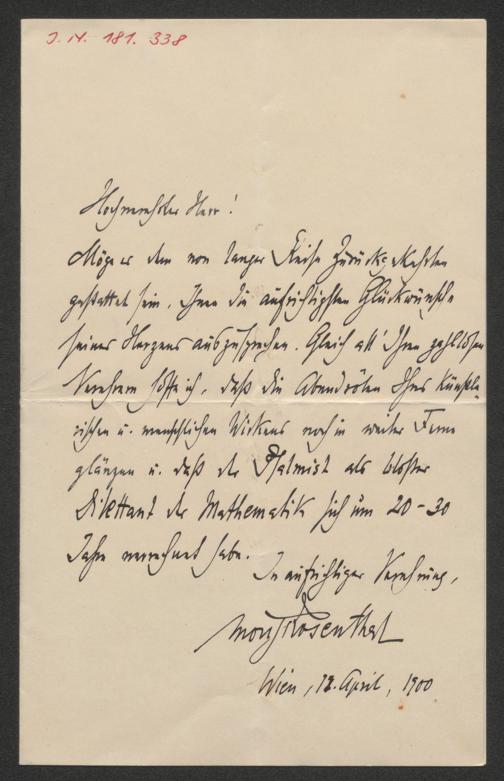 J. N. 181.338
Hochverehrter Herr!
Möge es dem von langer Reise Zurückgekehrten
gestattet sein, Ihnen die aufrichtigsten Glückwünsche
seines Herzens auszusprechen. Gleich all' Ihren zahllosen
Verehrern hoffe ich, daß die Abendröten Ihres künstle-
rischen u. menschlichen Wirkens noch in weiter Ferne
glänzen u. daß der Psalmist als bloßer
Dilettant der Mathematik sich um 20-30
Jahre verrechnet habe.
In aufrichtiger Verehrung,
Moriz Rosenthal
Wien, 12. April, 1900